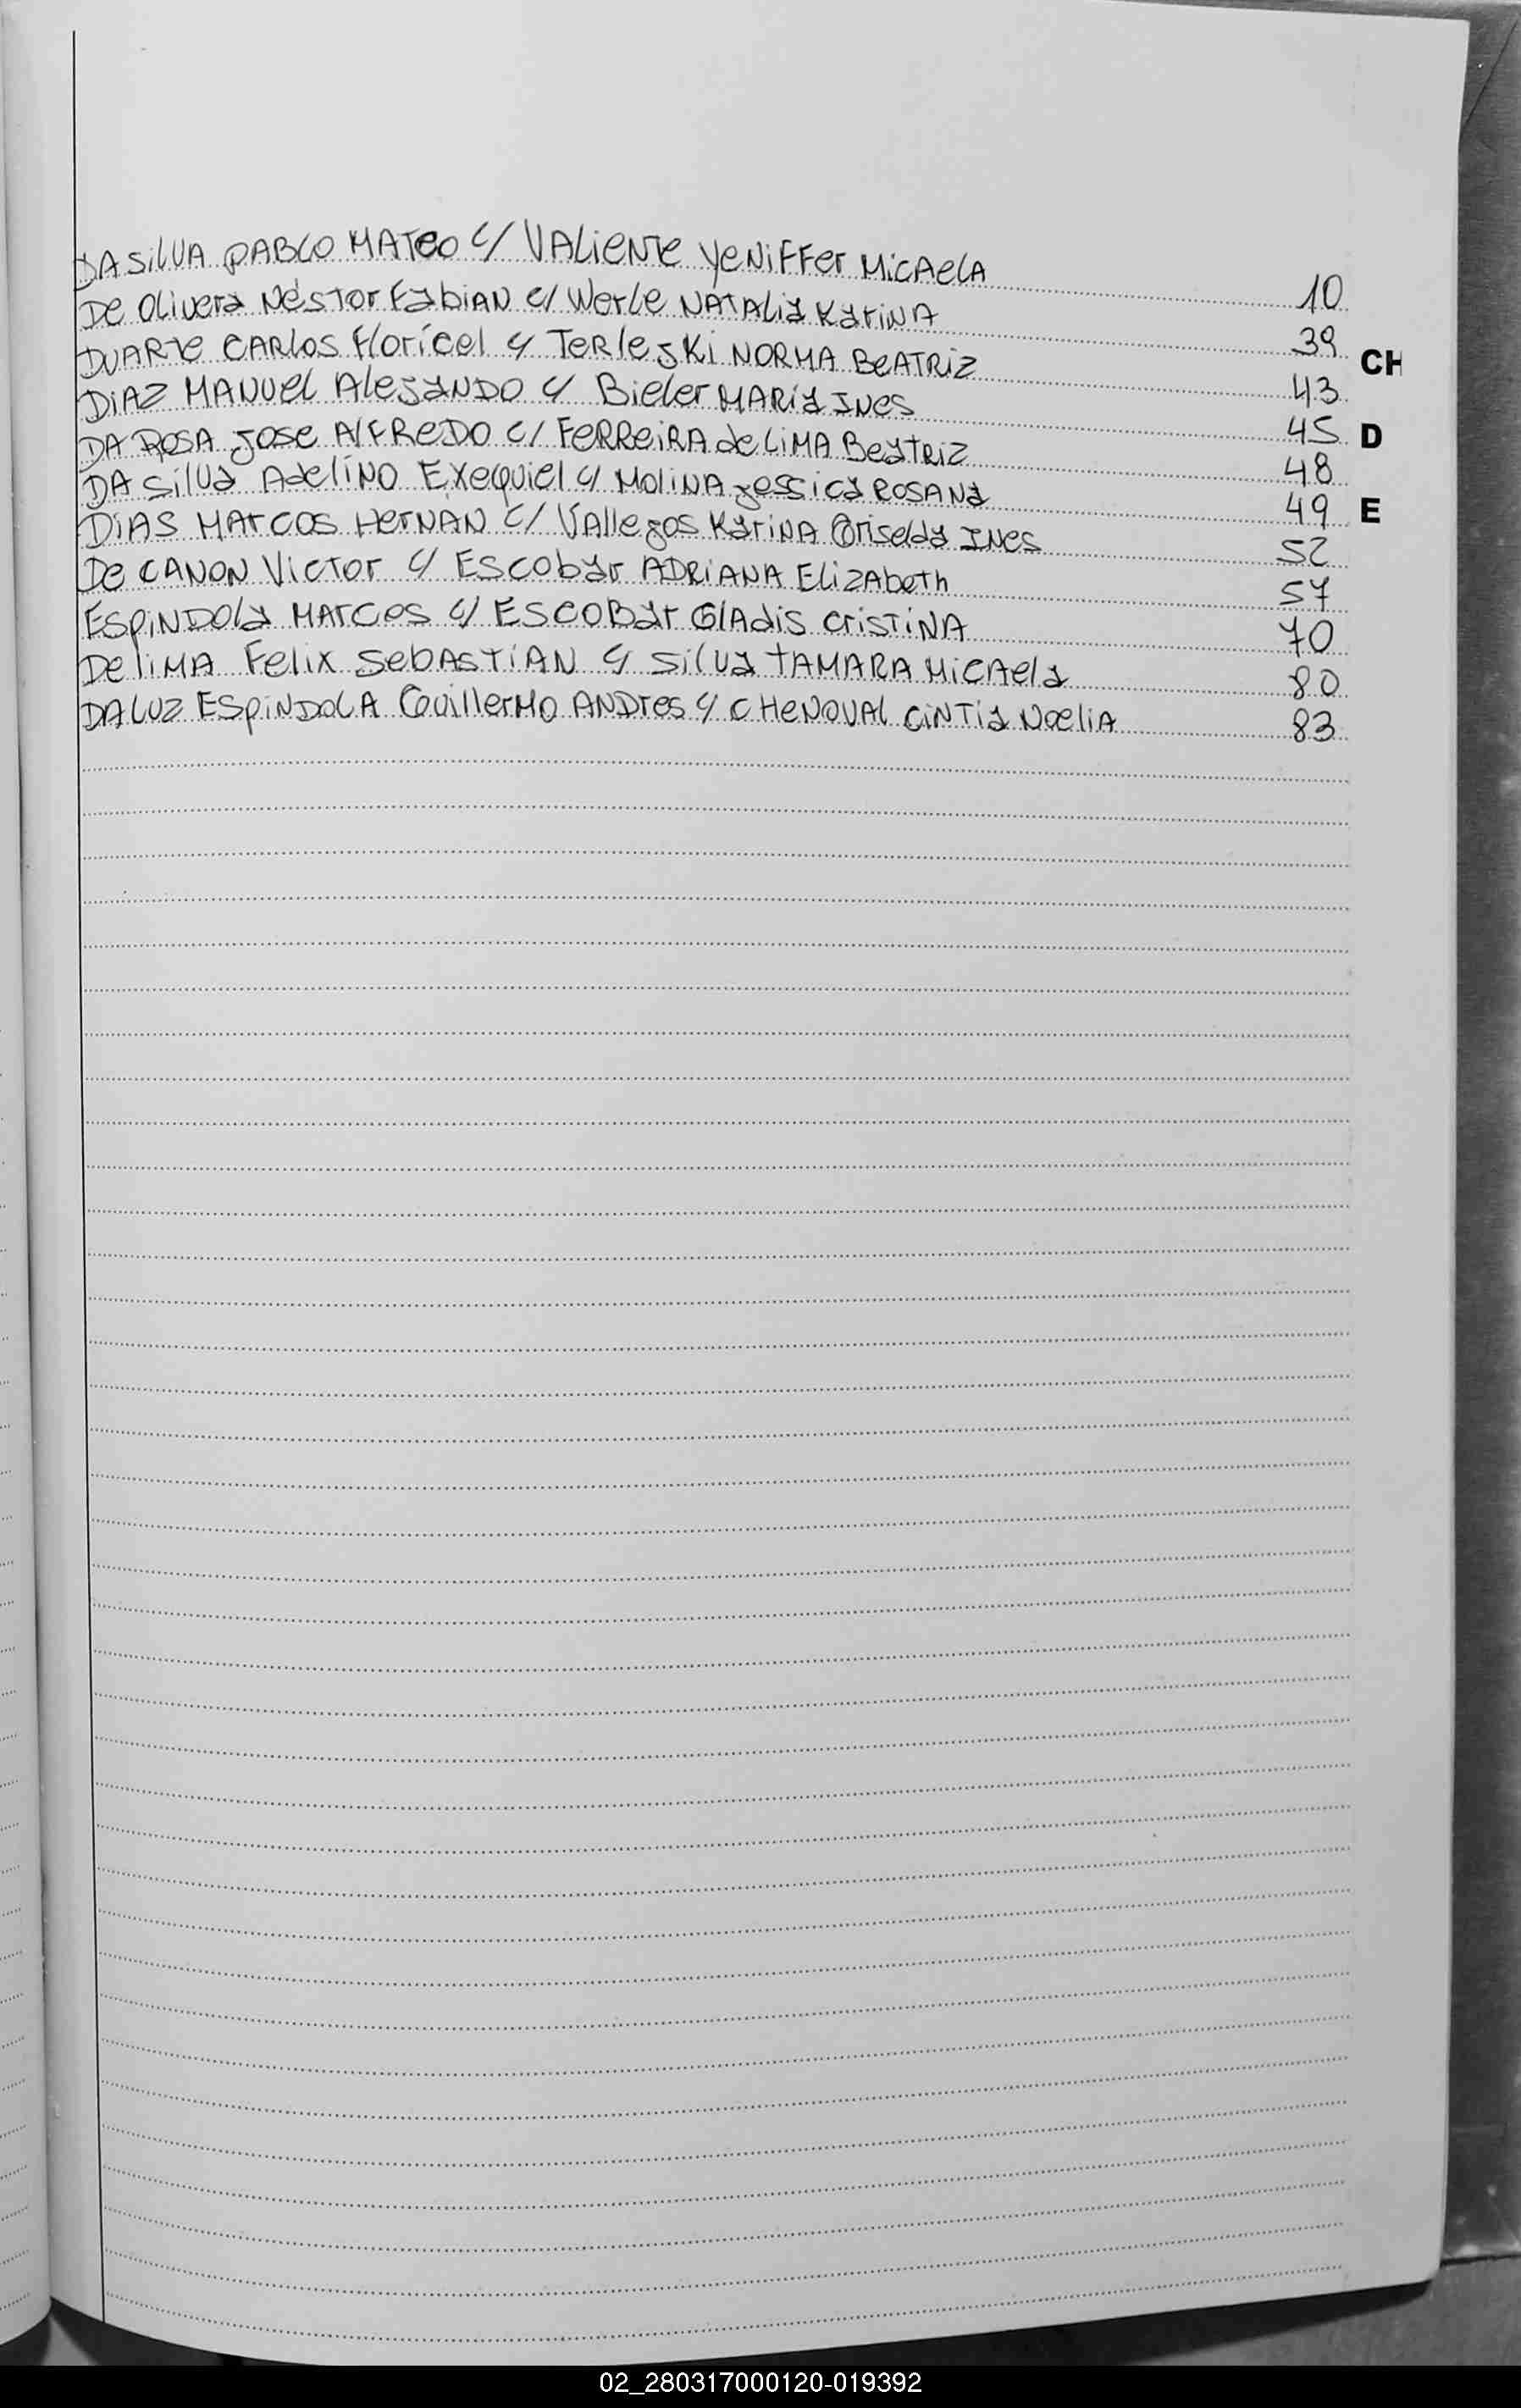 DA SilVA PABLO MATEO C/ VALIENTE YENIFFER MICAELA 10
De Olivera Néstor Fabian C/ Werle NATALIA KARINA 39
DUARTE CARLOS Floricel C/ TERleSKI NORMA BEATRIZ 43
CH
DIAZ MANUEL AleJANDO C/ Bieler MARIA INES 45
D
DA ROSA JOSE AlFREDO C/ FERREIRA de LIMA BEATRIZ 48
DA Silva Adelino Exequiel C/ MOLINA Jessica ROSANA 49
E
DIAS MARCOS HERNAN C/ Vallejos KARINA Griselda INES 52
De CANON Victor C/ Escobar ADRIANA ElizAbeth 57
ESPINDOLA MARCOS C/ ESCOBAR GLADIS CRISTINA 70
De LIMA Felix SebASTIAN C/ Silva TAMARA MICAela 80
DA LUZ ESPINDOLA Guillermo ANDRES C/ CHENOVAL CINTIA NOELIA 83
02_280317000120-019392